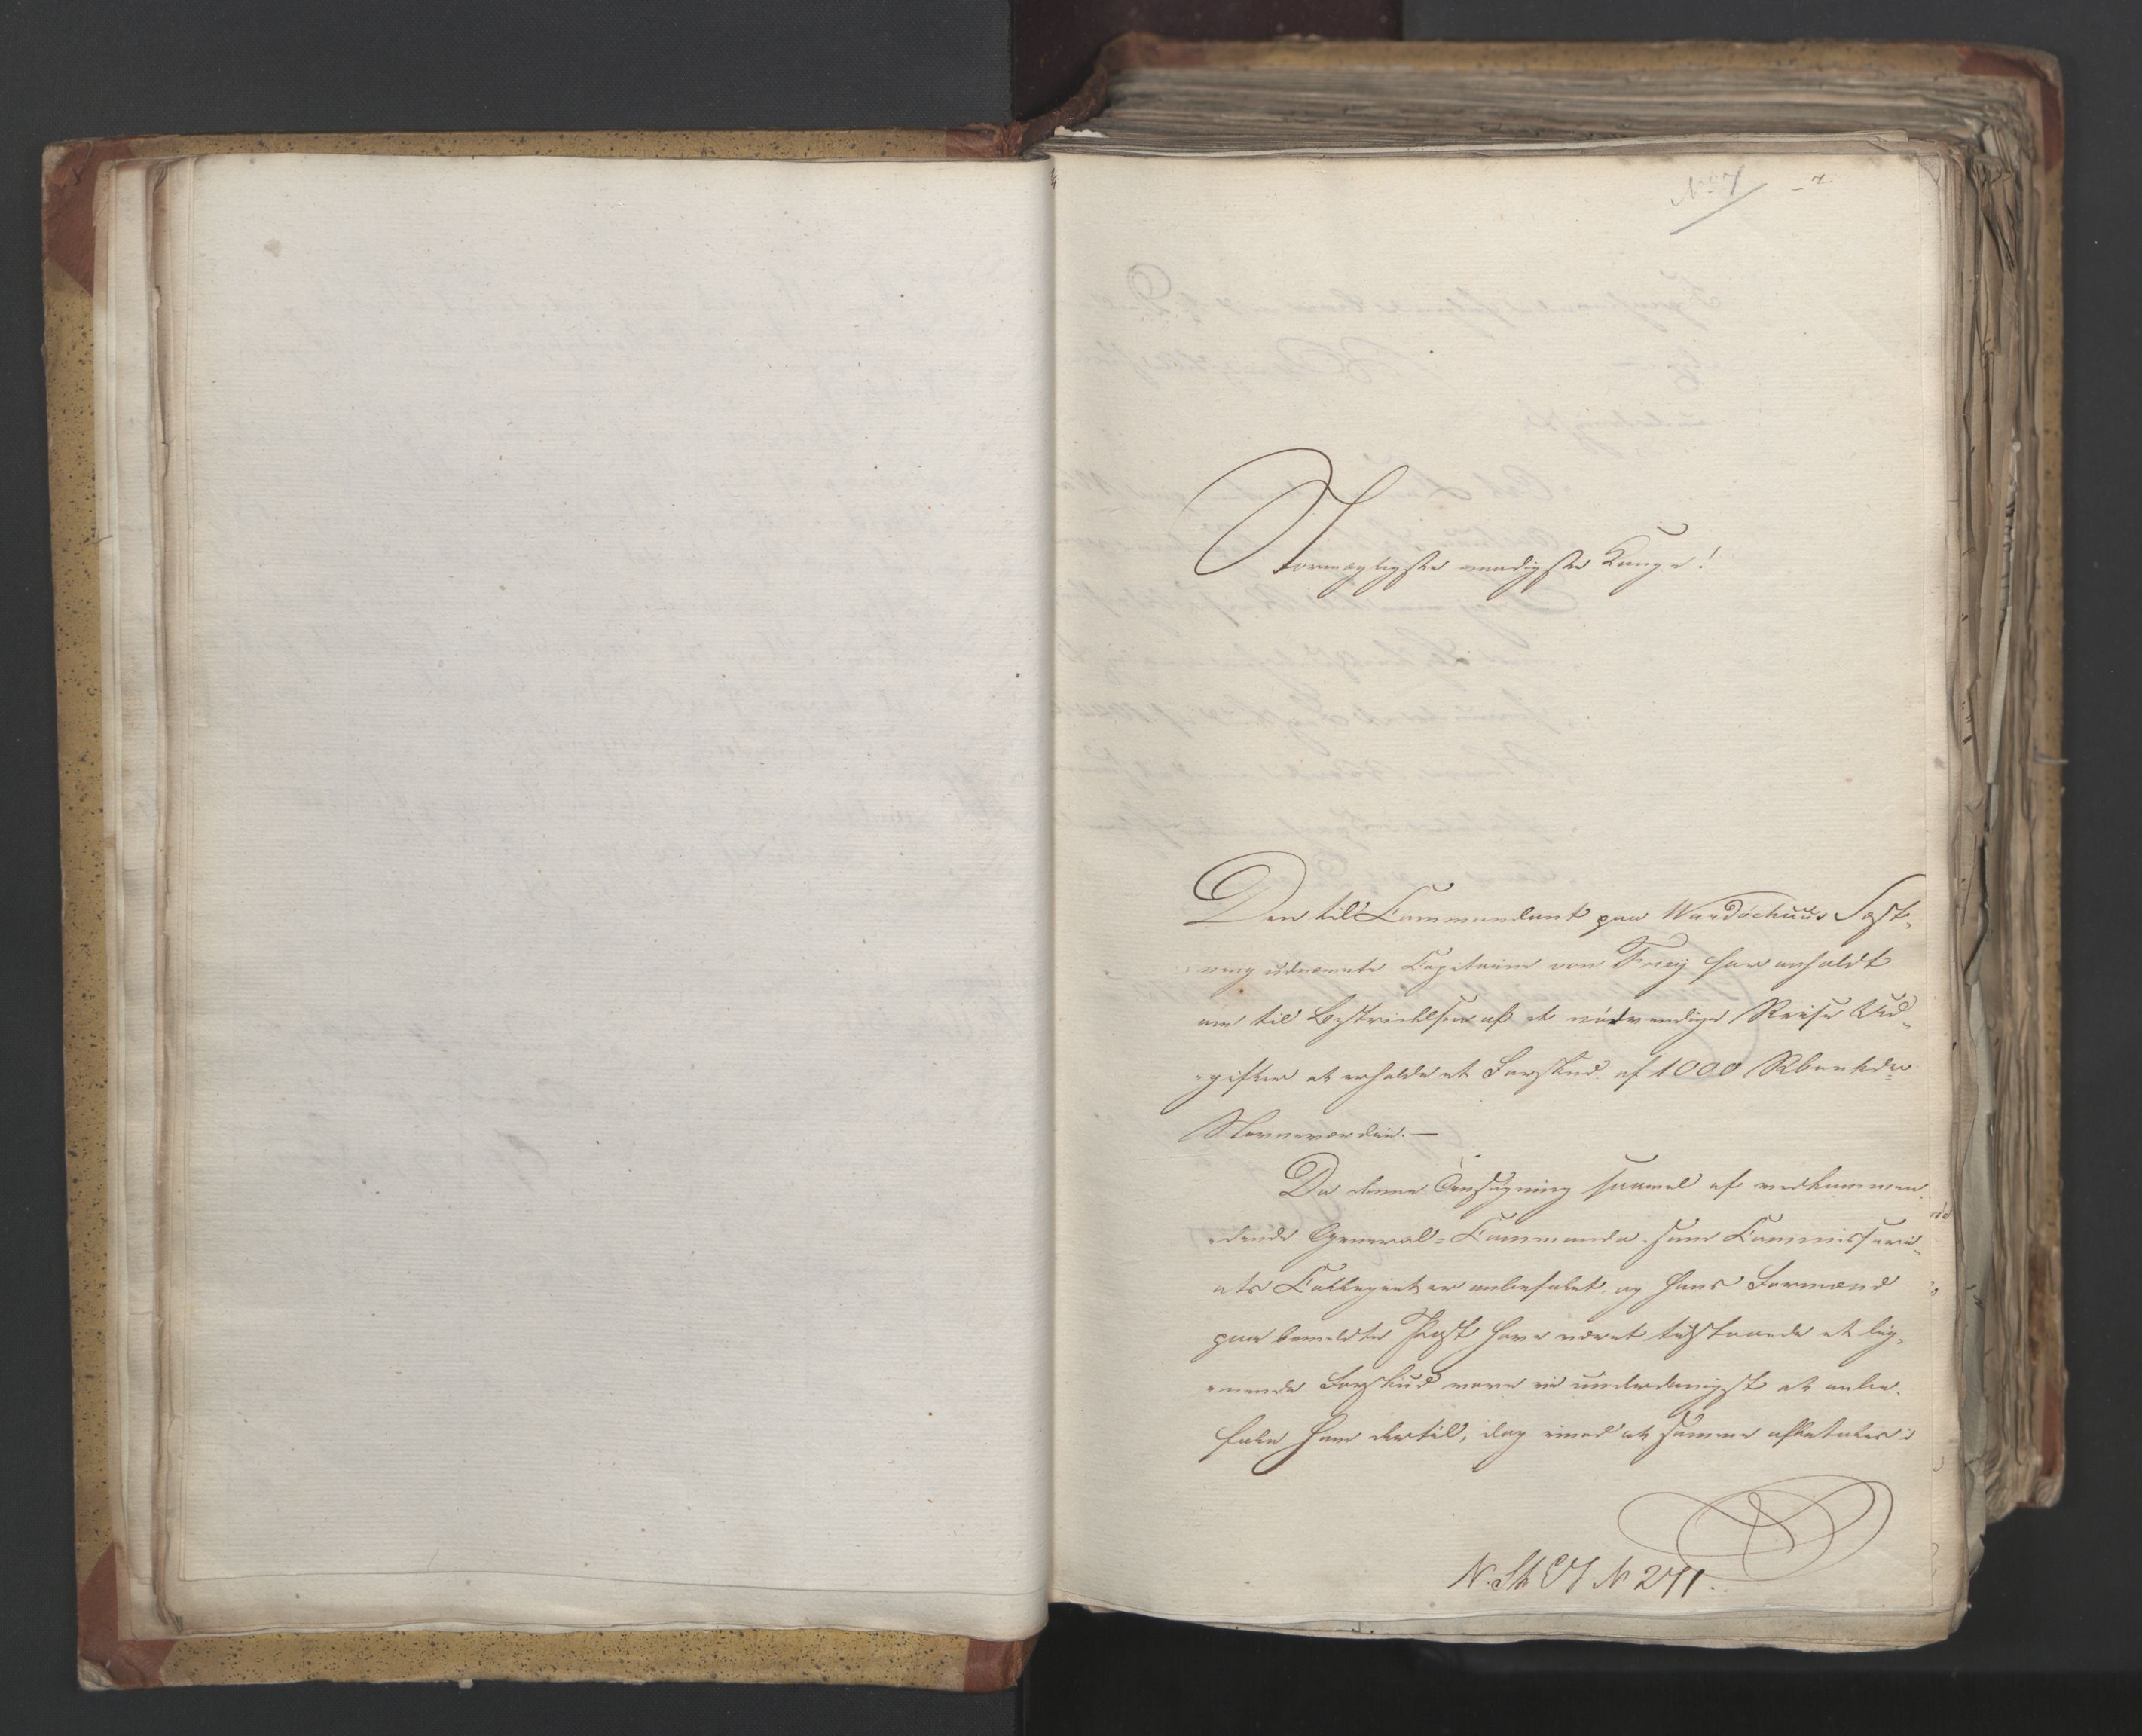 No 7
7
Stormægtigste naadigste Konge!
Den til Commandant paa Wardöehuus Fæst-
ning udnævnte Capitaine von Frey har anholdt
om til Bestridelsen af de nödvendige Reise Ud-
gifter at erholde et Forskud af 1000 Rbankdlr
Navneværdie. —
Da denne Ansögning saavel af vedkommen-
dende General-Commando som Commissari-
ats Collegiet er anbefalet, og hans Formænd
paa bemeldte Post have været tilstaaede et lig-
nende Forskud vove vi underdanigst at anbe-
fale ham dertil, dog imod at samme afbetales i
N. St CT N 271.